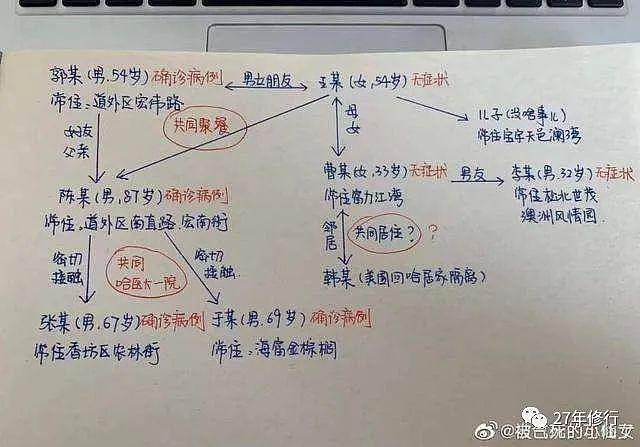 郭某(男.54岁)确诊病例
男女朋友
王某(女,54岁)无症状
常住:道外区宏伟路
女友
父亲
共同聚餐
母
女
儿子(没啥事儿)
常住宝宇天邑澜湾
陈某(男,87岁)确诊病例
常住:道外区南直路.宏南街
曹某(女,33岁)无症状
常住富力江湾
男友
李某(男,32岁)无症状
常住松北世茂
澳洲风情园
邻居
共同居住?
?
韩某(美国回哈居家隔离)
密切
接触
共同
哈医大一院
密切
接触
张某(男,67岁)确诊病例
常住香坊区农林街
于某(男.69岁)确诊病例
常住:海富金棕榈
27年修行
@被包死的小仙女